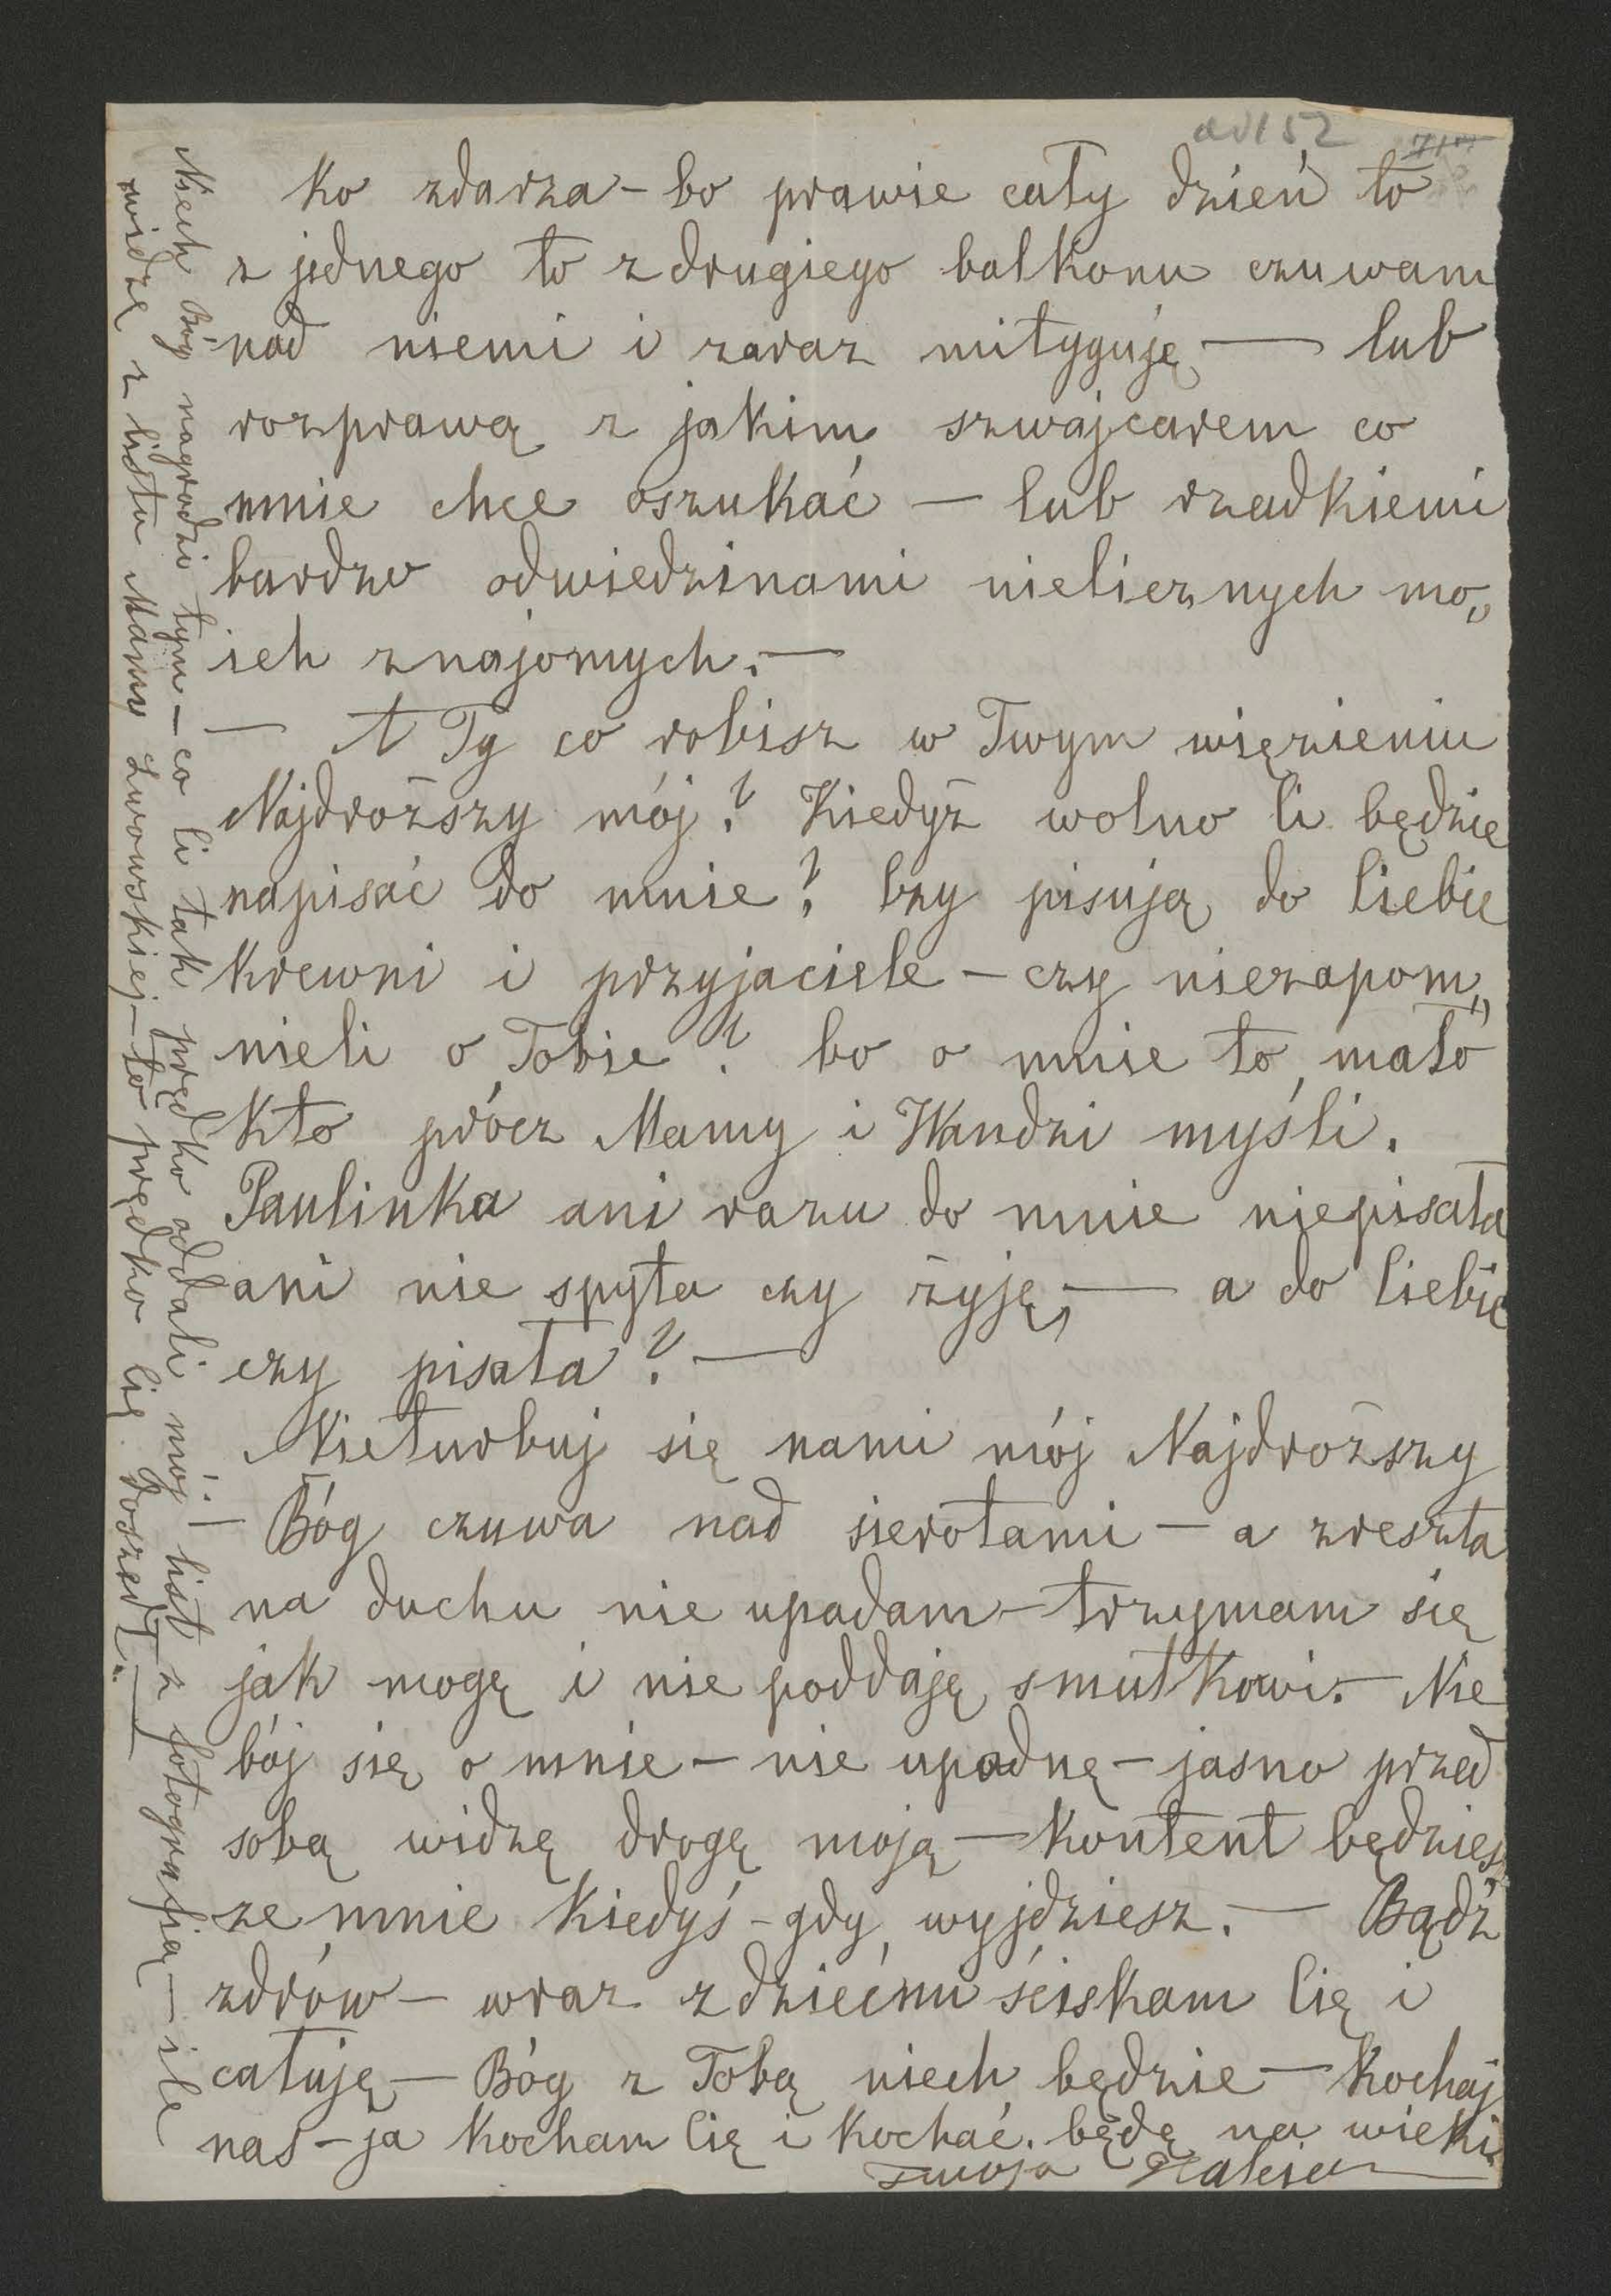 ad 152
ko zdarza – bo prawie cały dzień to
z jednego to z drugiego balkonu czuwam
nad niemi i zaraz mityguję — lub
rozprawą z jakim szwajcarem co
mnie chce oszukać – lub rzadkiemi
bardzo odwiedzinami nielicznych mo„
ich znajomych. —
— A Ty co robisz w Twym więzieniu
Najdroższy mój? Kiedyż wolno Ci będzie
napisać do mnie? Czy pisują do Ciebie
krewni i przyjaciele – czy niezapom„
nieli o Tobie? bo o mnie to mało
kto prócz Mamy i Wandzi myśli.
Paulinka ani razu do mnie niepisała
ani nie spyta czy żyję, — a do Ciebie
czy pisała? —
Nieturbuj się nami mój Najdroższy
– Bóg czuwa nad sierotami – a zresztą
na duchu nie upadam – trzymam się
jak mogę i nie poddaję smutkowi. – Nie
bój się o mnie – nie upadnę – jasno przed
sobą widzę drogę moją – kontent będziesz
ze mnie kiedyś – gdy wyjdziesz. — Bądź
zdrów – wraz z dziećmi ściskam Cię i
całuję – Bóg z Tobą niech będzie – Kochaj
nas – ja kocham Cię i kochać będę na wieki
Twoja Halsia
Niech Bóg nagrodzi tym – co Ci tak prędko oddali mój list z fotografią – ile
widzę z listu Mamy Lwowskiej – to prędko Cię doszedł. —